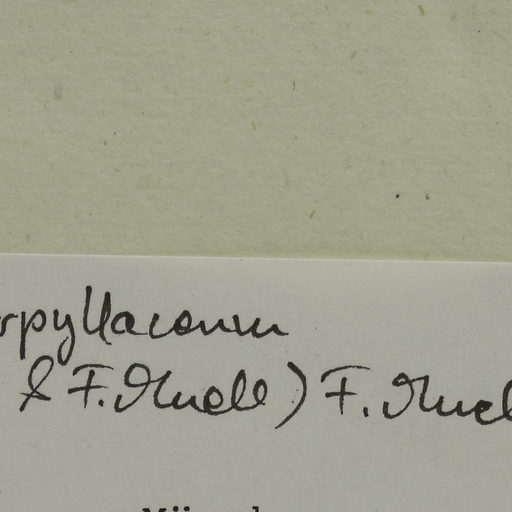 rpyllaceum
& F. Muell) F. Muel